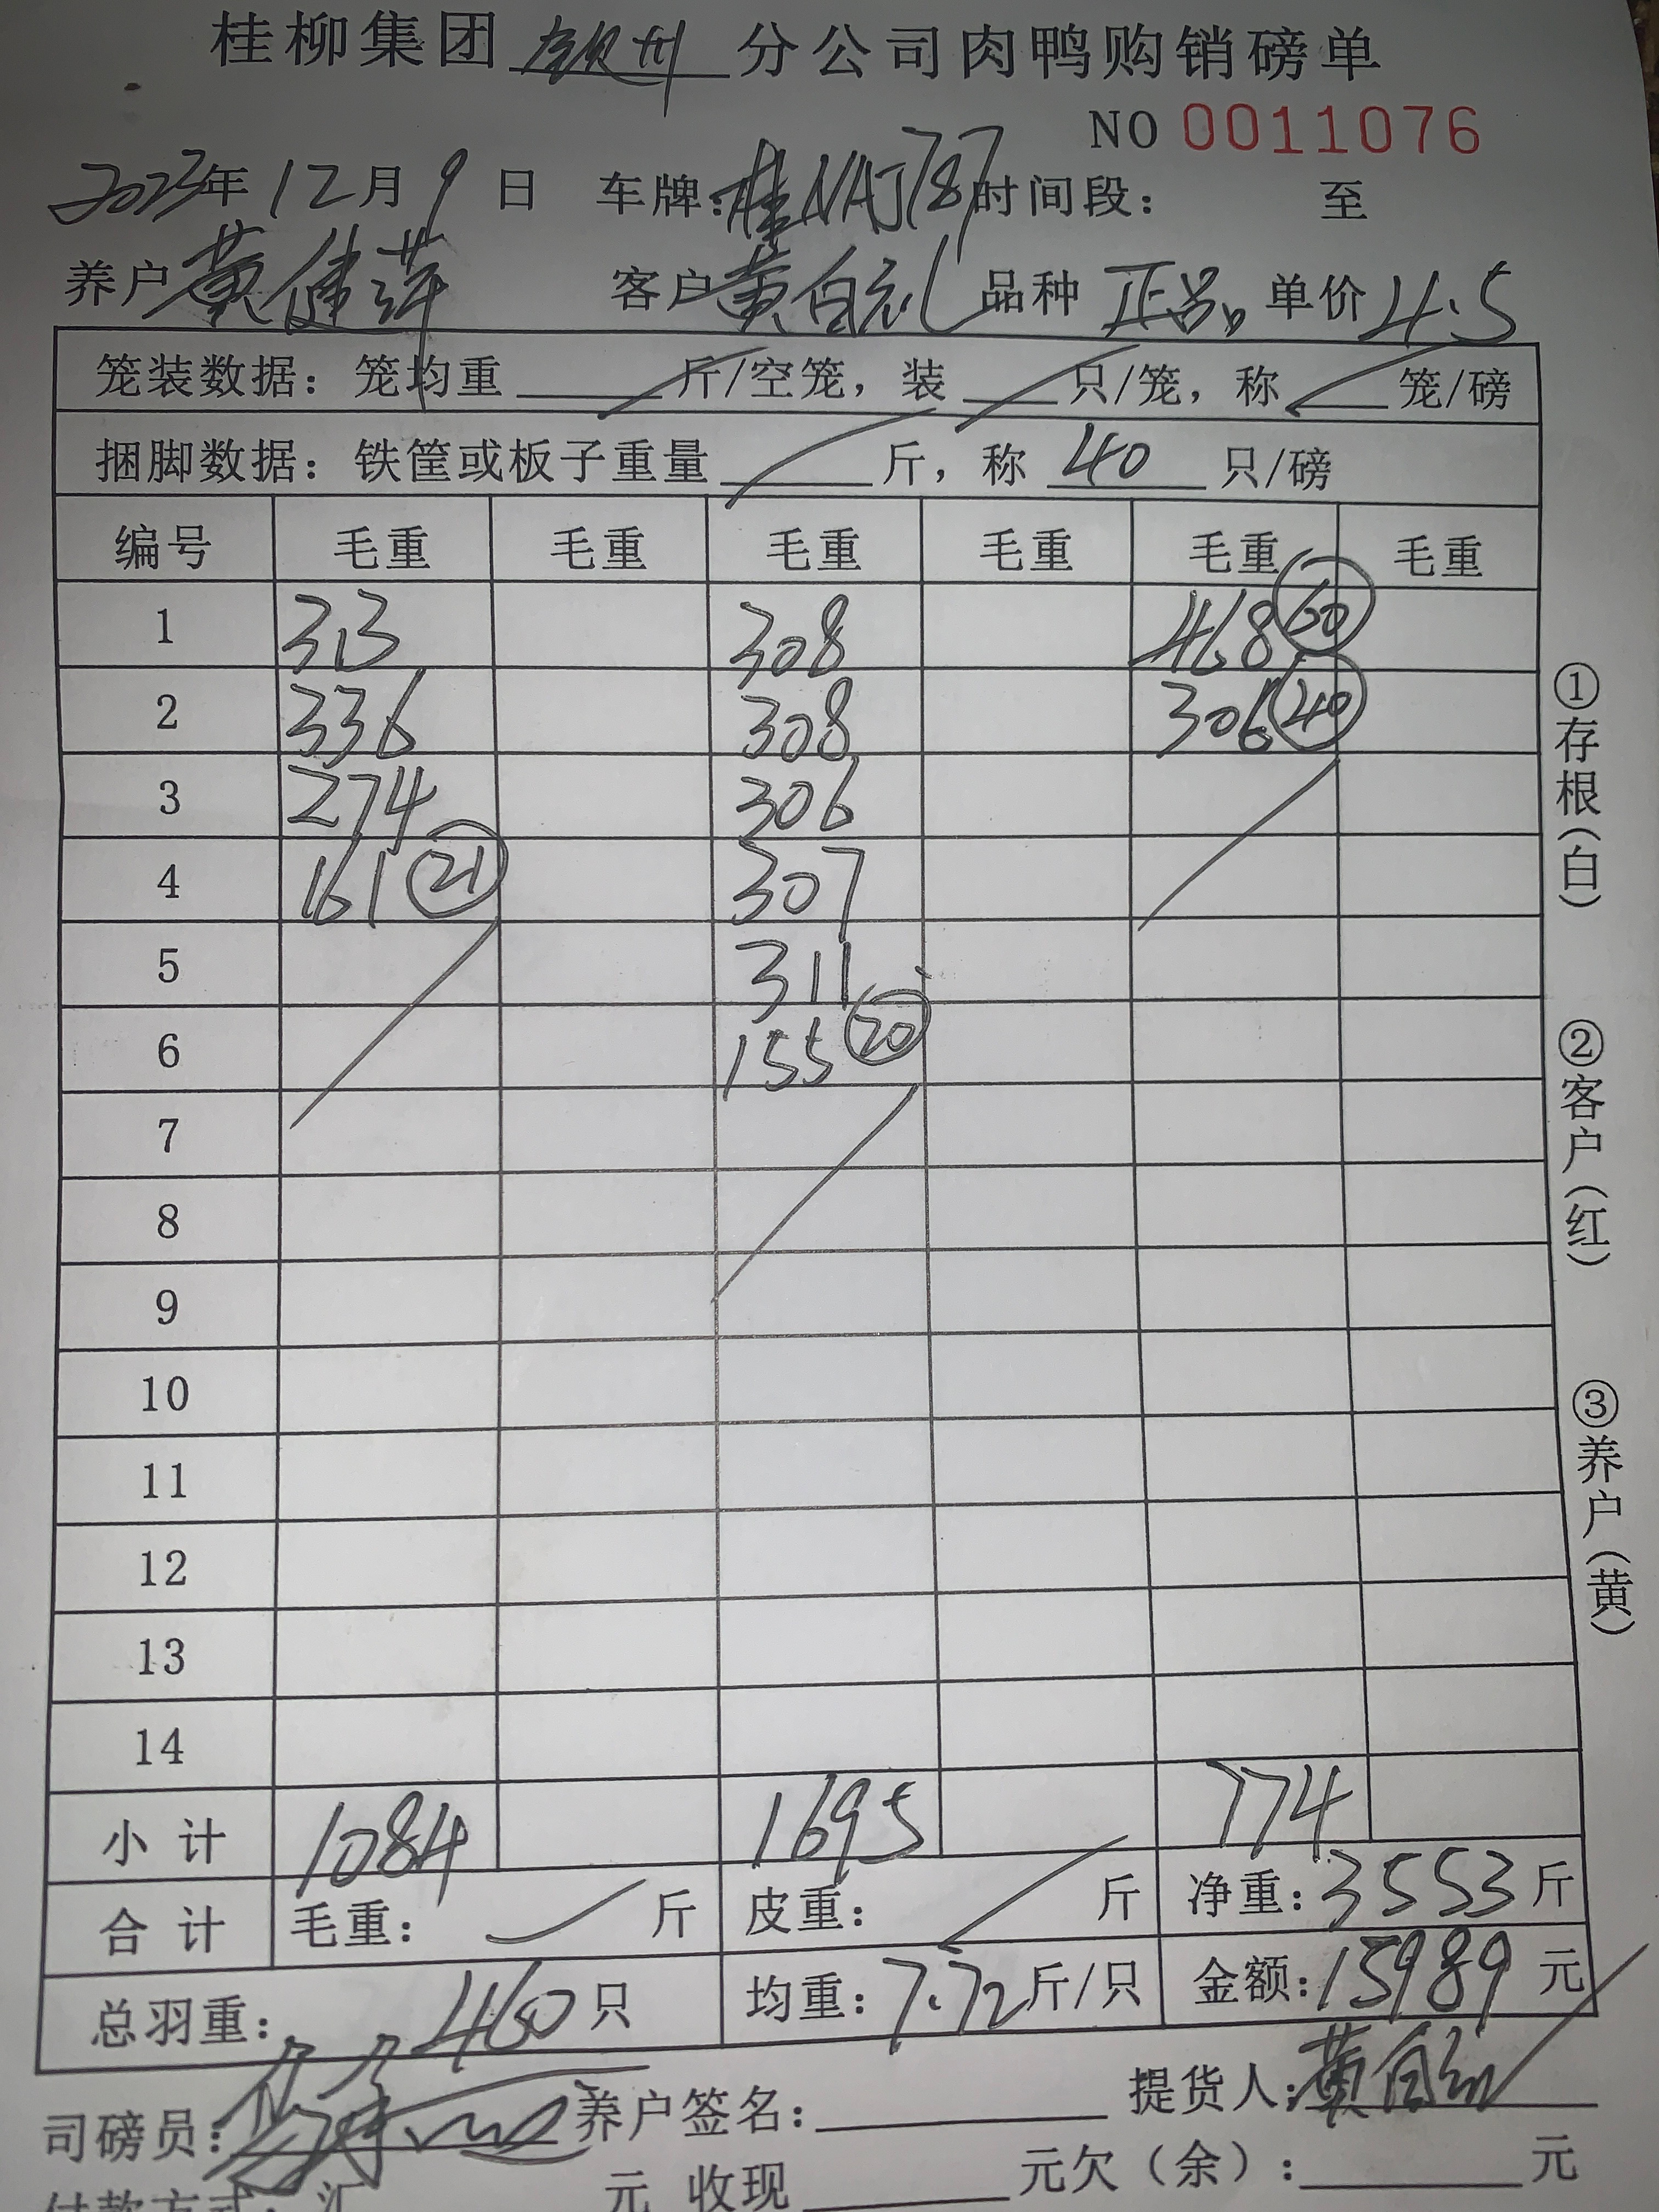 桂柳集团 钦州 分公司肉鸭购销磅单
NO 0011076
2023年 12月 9日 车牌:桂NAJ787 时间段: 至
养户 黄健萍 客户 黄自 品种 正品 单价 4.5
笼装数据: 笼均重 斤/空笼, 装 只/笼, 称 笼/磅
捆脚数据: 铁筐或板子重量 斤, 称 40 只/磅
编号 毛重 毛重 毛重 毛重 毛重 毛重
1 313 308 468 60
2 336 308 306 40
3 274 306
4 161 21 307
5 311
6 155 20
7
8
9
10
11
12
13
14
小计 1084 1695 774
合计 毛重: 斤 皮重: 斤 净重:3553斤
总羽重: 460只 均重:7.72斤/只 金额:15989元
司磅员: 养户签名: 提货人:黄自
付款方式:汇 元 收现 元欠(余): 元
①存根(白)
②客户(红)
③养户(黄)